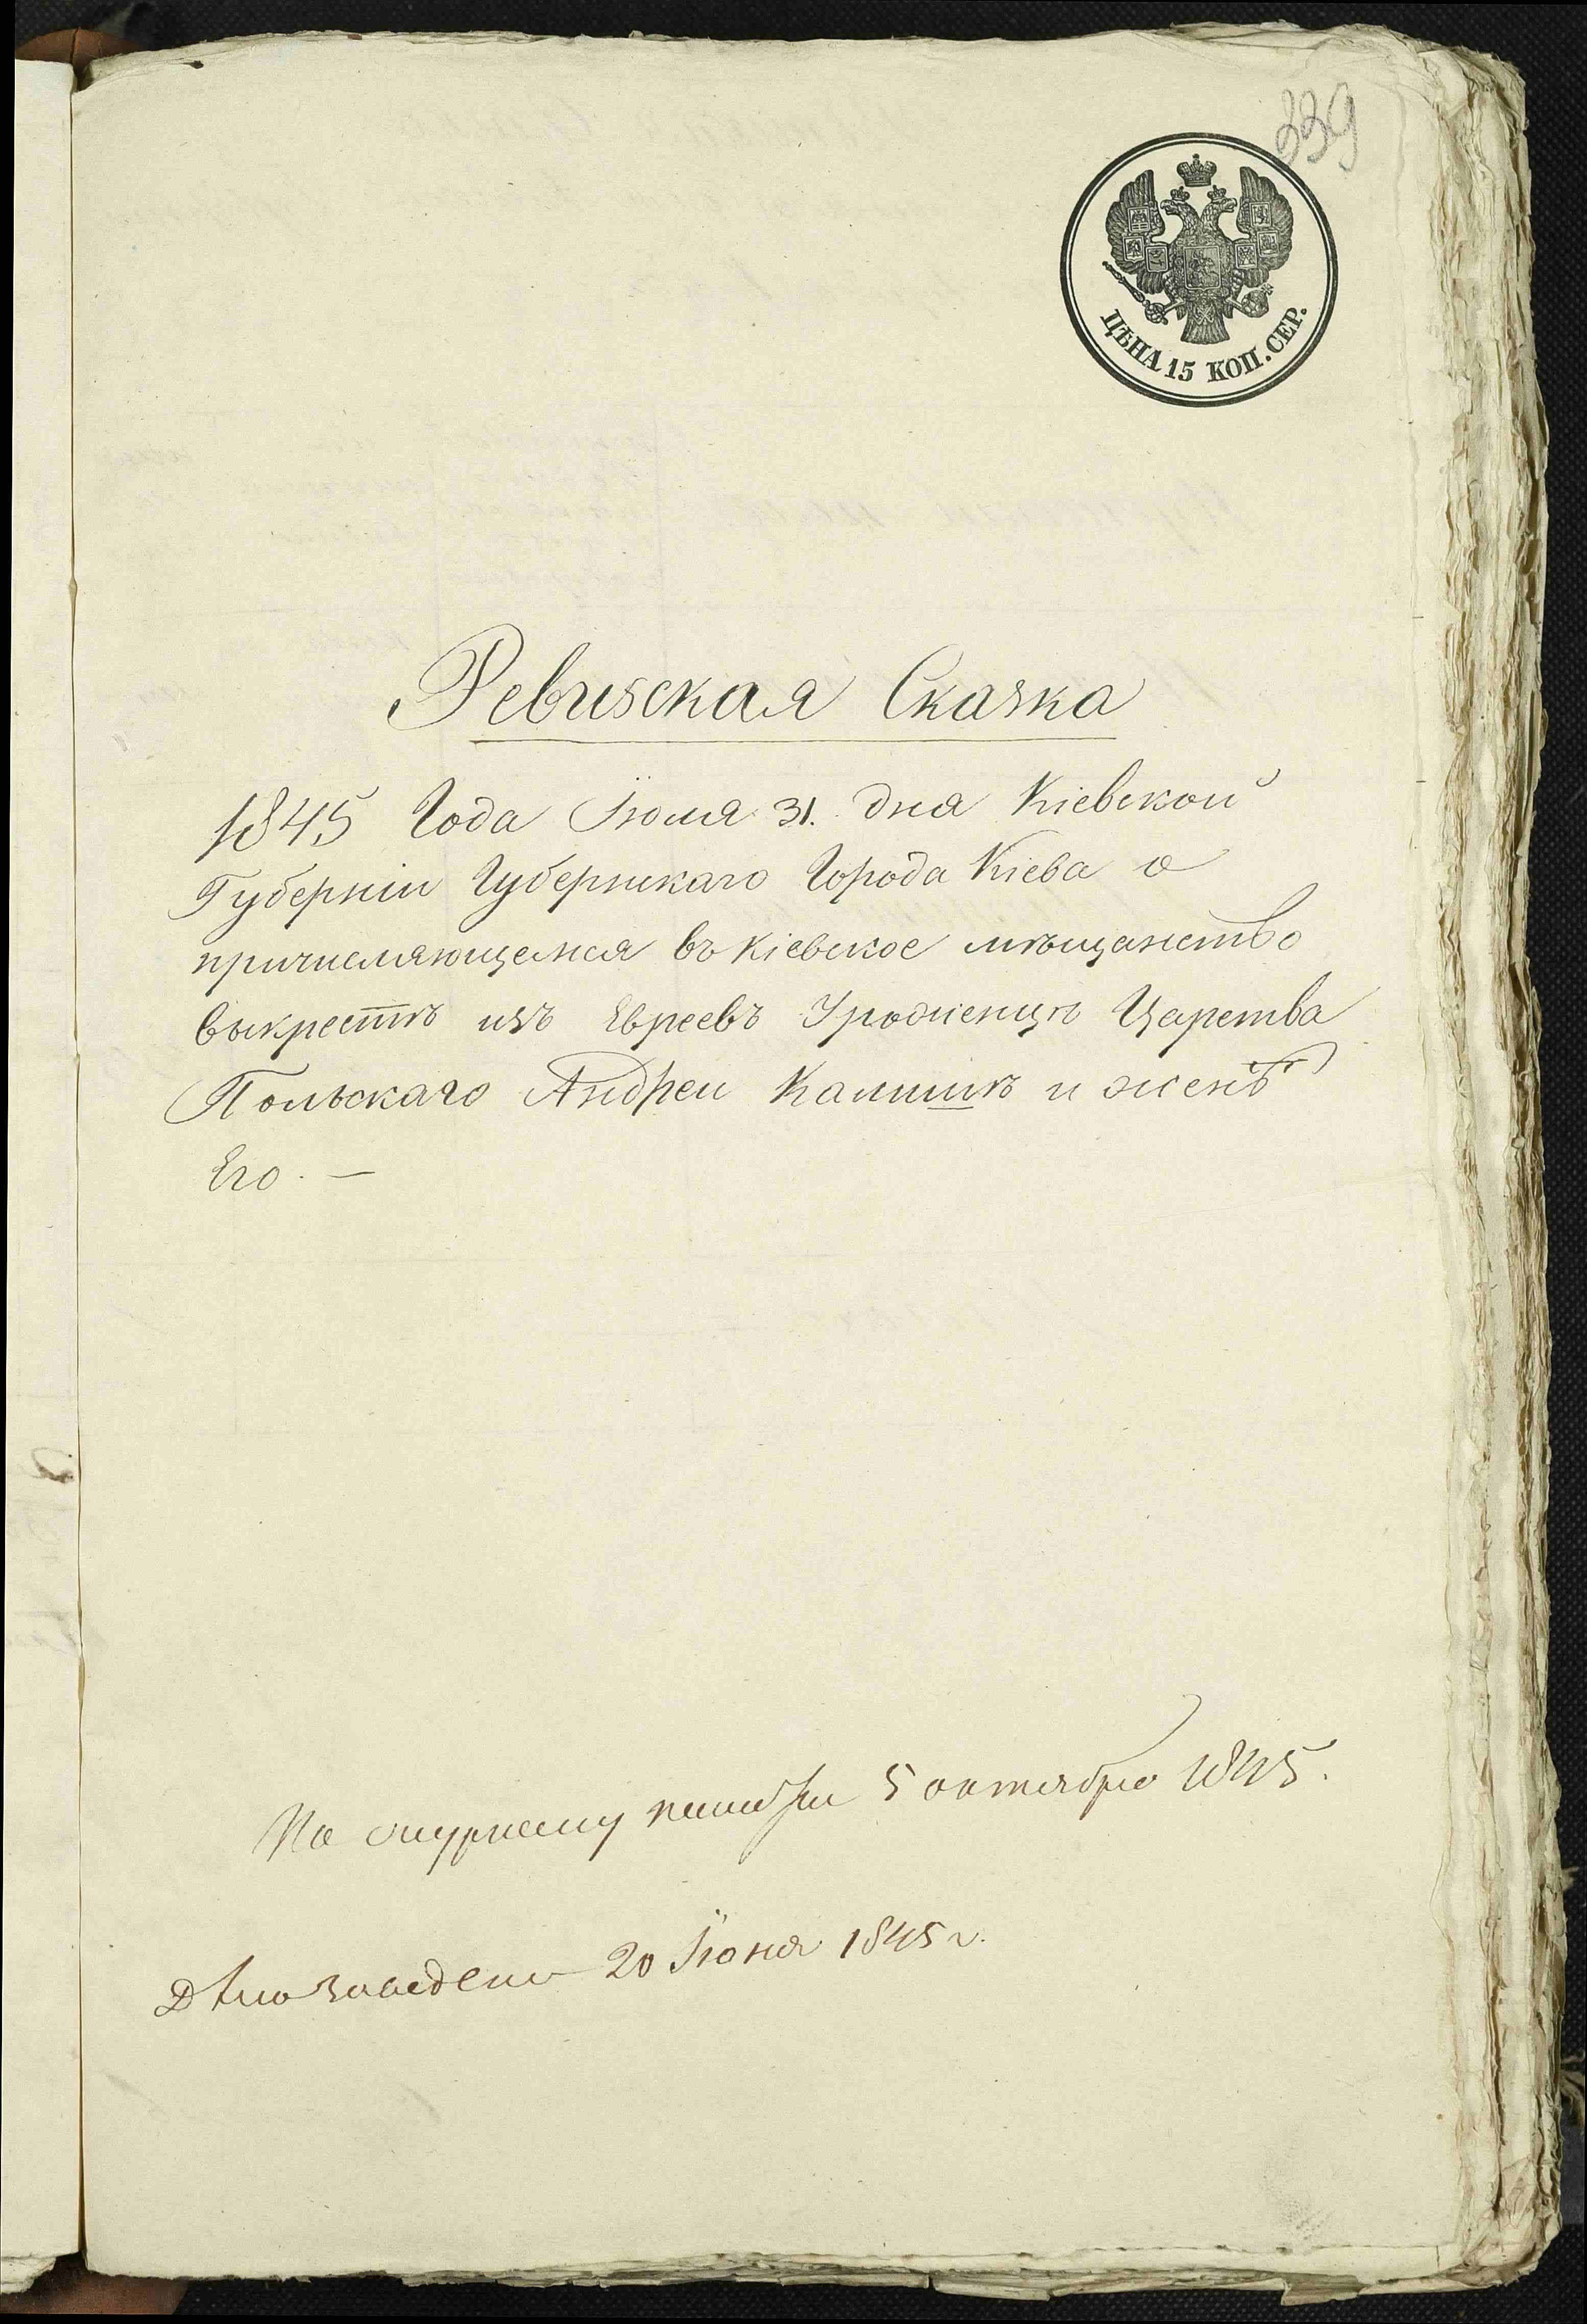 339
ЦѢНА 15 КОП. СЕР.
Ревизская Сказка
1845 Года Іюля 31. дня Кіевской
Губерніи Губернскаго Города Кіева о
причисляющемся въ Кіевское мѣщанство
выкрестѣ изъ Евреевъ Уроженцѣ Царства
Польскаго Андреи Калишѣ и женѣ
Его. —
По 5 октября 1845.
Дѣло заведено 20 Іюня 1845 г.